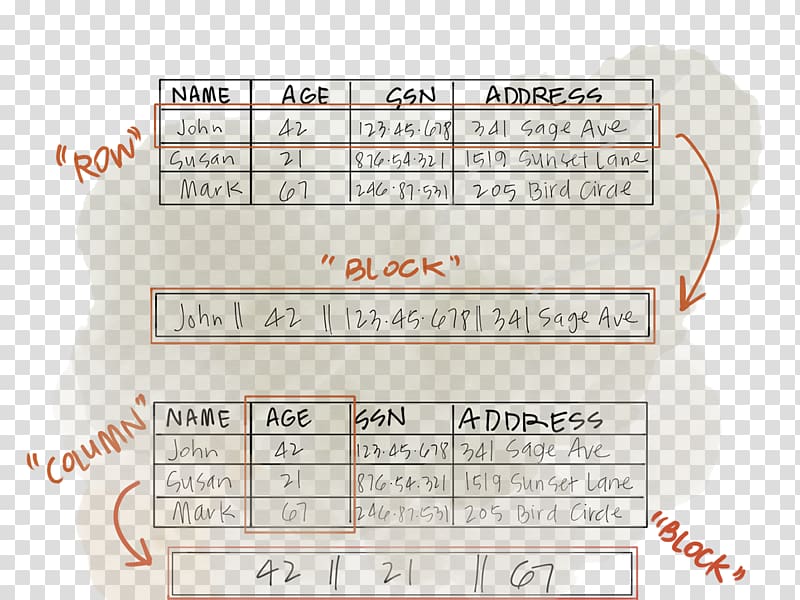 NAME AGE SSN ADDRESS
"ROW" John 42 123.45.678 341 Sage Ave
Susan 21 876.54.321 1519 Sunset Lane
Mark 67 246.87.531 205 Bird Circle
"BLOCK"
John || 42 || 123.45.678 || 341 Sage Ave
NAME AGE SSN ADDRESS
"COLUMN" John 42 123.45.678 341 Sage Ave
Susan 21 876.54.321 1519 Sunset Lane
Mark 67 246.87.531 205 Bird Circle
"BLOCK"
42 || 21 || 67